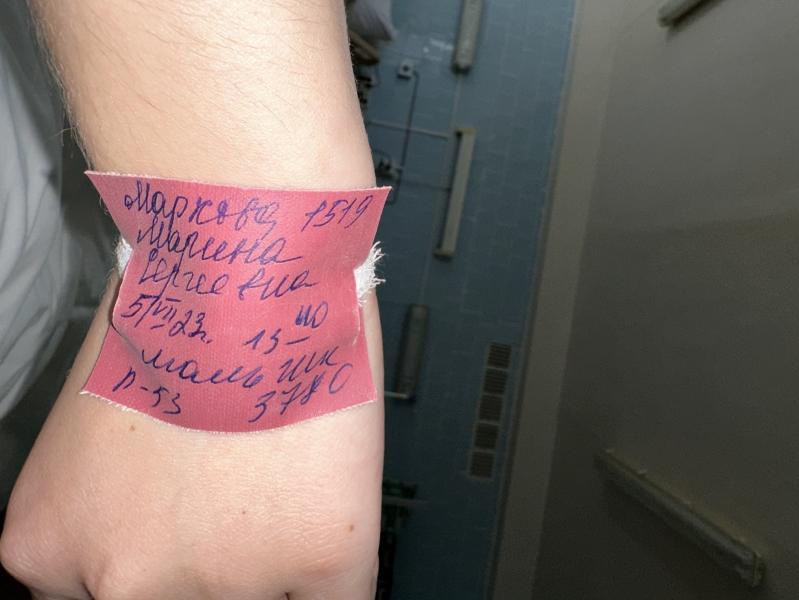 Маркова 1519
Марина
Сергеевна
5/VII 23г. 13-40
мальчик
р-53 3780